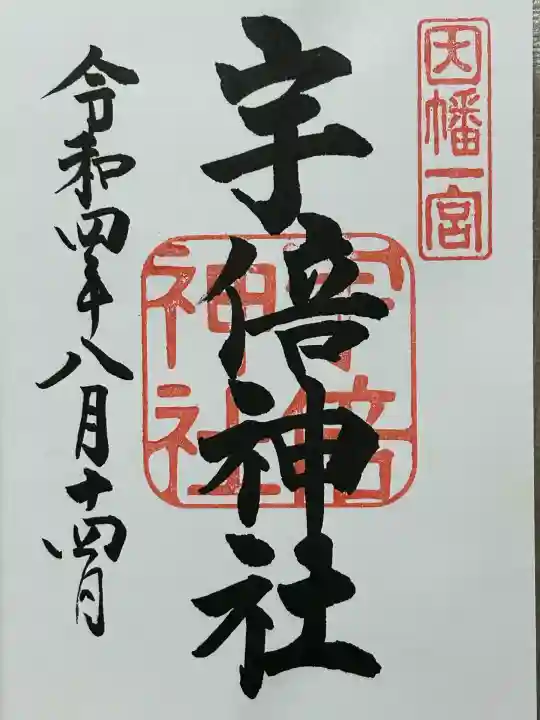 因幡一宮
宇倍神社
宇倍
神社
令和四年八月十四日